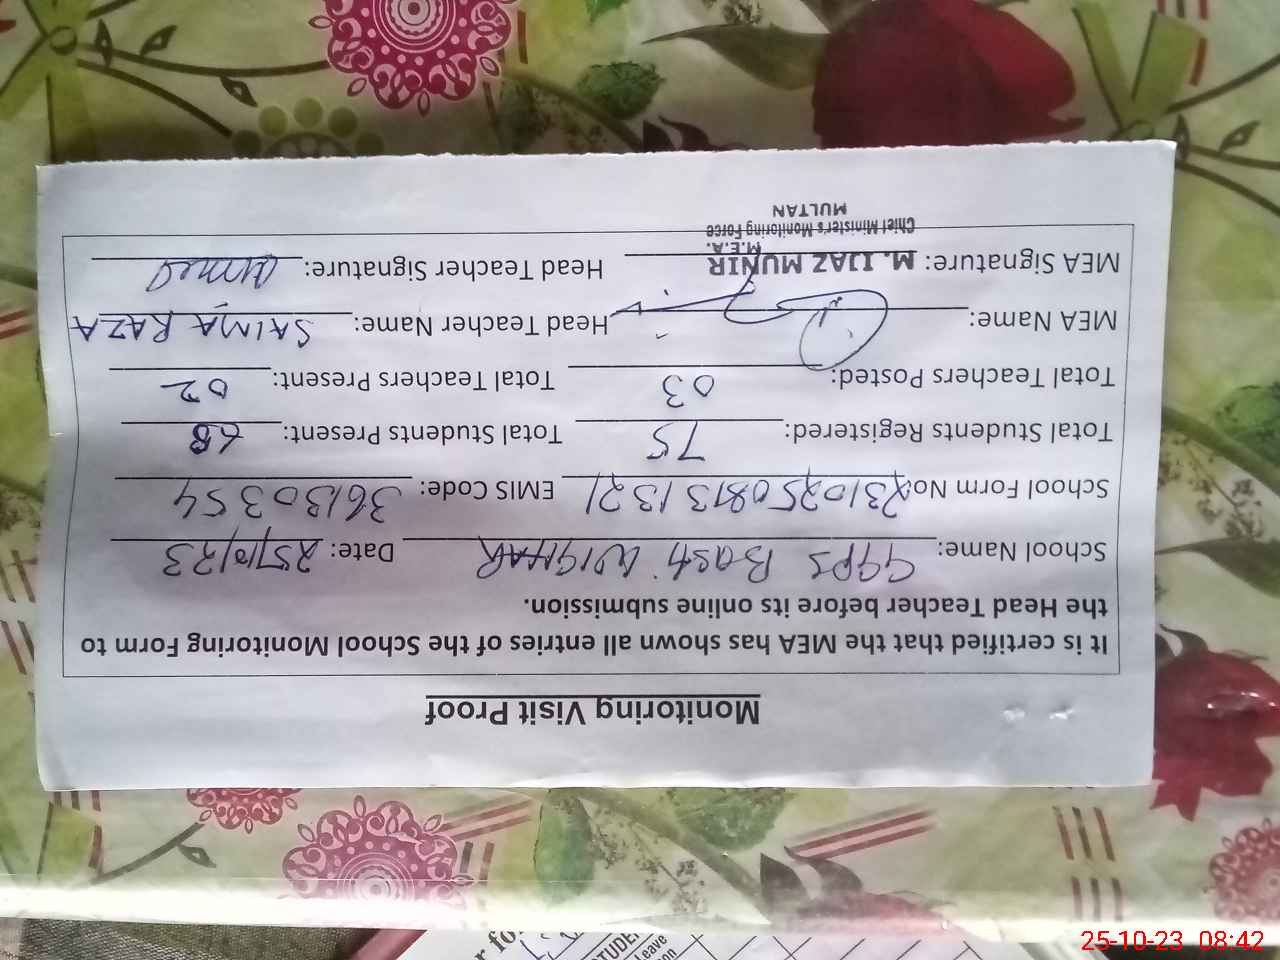 Monitoring Visit Proof
It is certified that the MEA has shown all entries of the School Monitoring Form to
the Head Teacher before its online submission.
School Name: GGPS Basti WIGHAR Date: 25/10/23
School Form No: EMIS Code: 36130354
Total Students Registered: 75 Total Students Present: 68
Total Teachers Posted: 03 Total Teachers Present: 02
MEA Name: Head Teacher Name: SAIMA RAZA
MEA Signature: M. IJAZ MUNIR Head Teacher Signature:
M.E.A.
Chief Minister's Monitoring Force
MULTAN
Leave
25-10-23 08:42